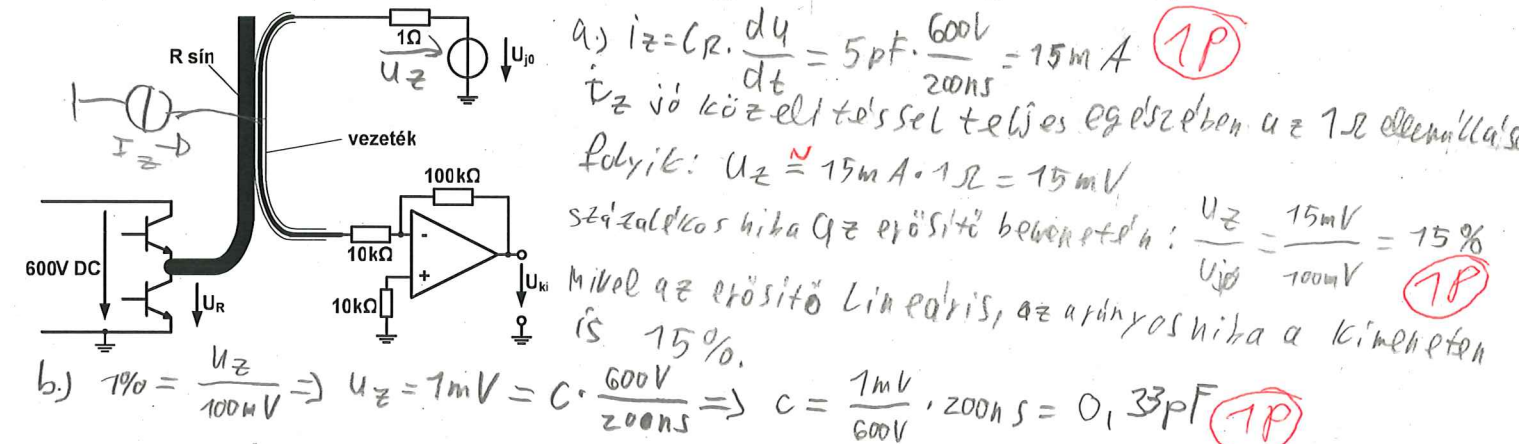 R sín
1Ω
U_Z
U_j0
I_Z
vezeték
100kΩ
10kΩ
-
+
10kΩ
U_ki
600V DC
U_R
a.) i_Z = C_R · du/dt = 5pF · 600V/200ns = 15mA 1P
i_Z jó közelítéssel teljes egészében az 1Ω ellenálláso
folyik: U_Z ≅ 15mA · 1Ω = 15mV
százalékos hiba az erősítő bemenetén: U_Z/U_j0 = 15mV/100mV = 15% 1P
Mivel az erősítő Lineáris, az arányos hiba a kimeneten
is 15%.
b.) 1% = U_Z/100mV => U_Z = 1mV = C · 600V/200ns => C = 1mV/600V · 200ns = 0,33pF 1P